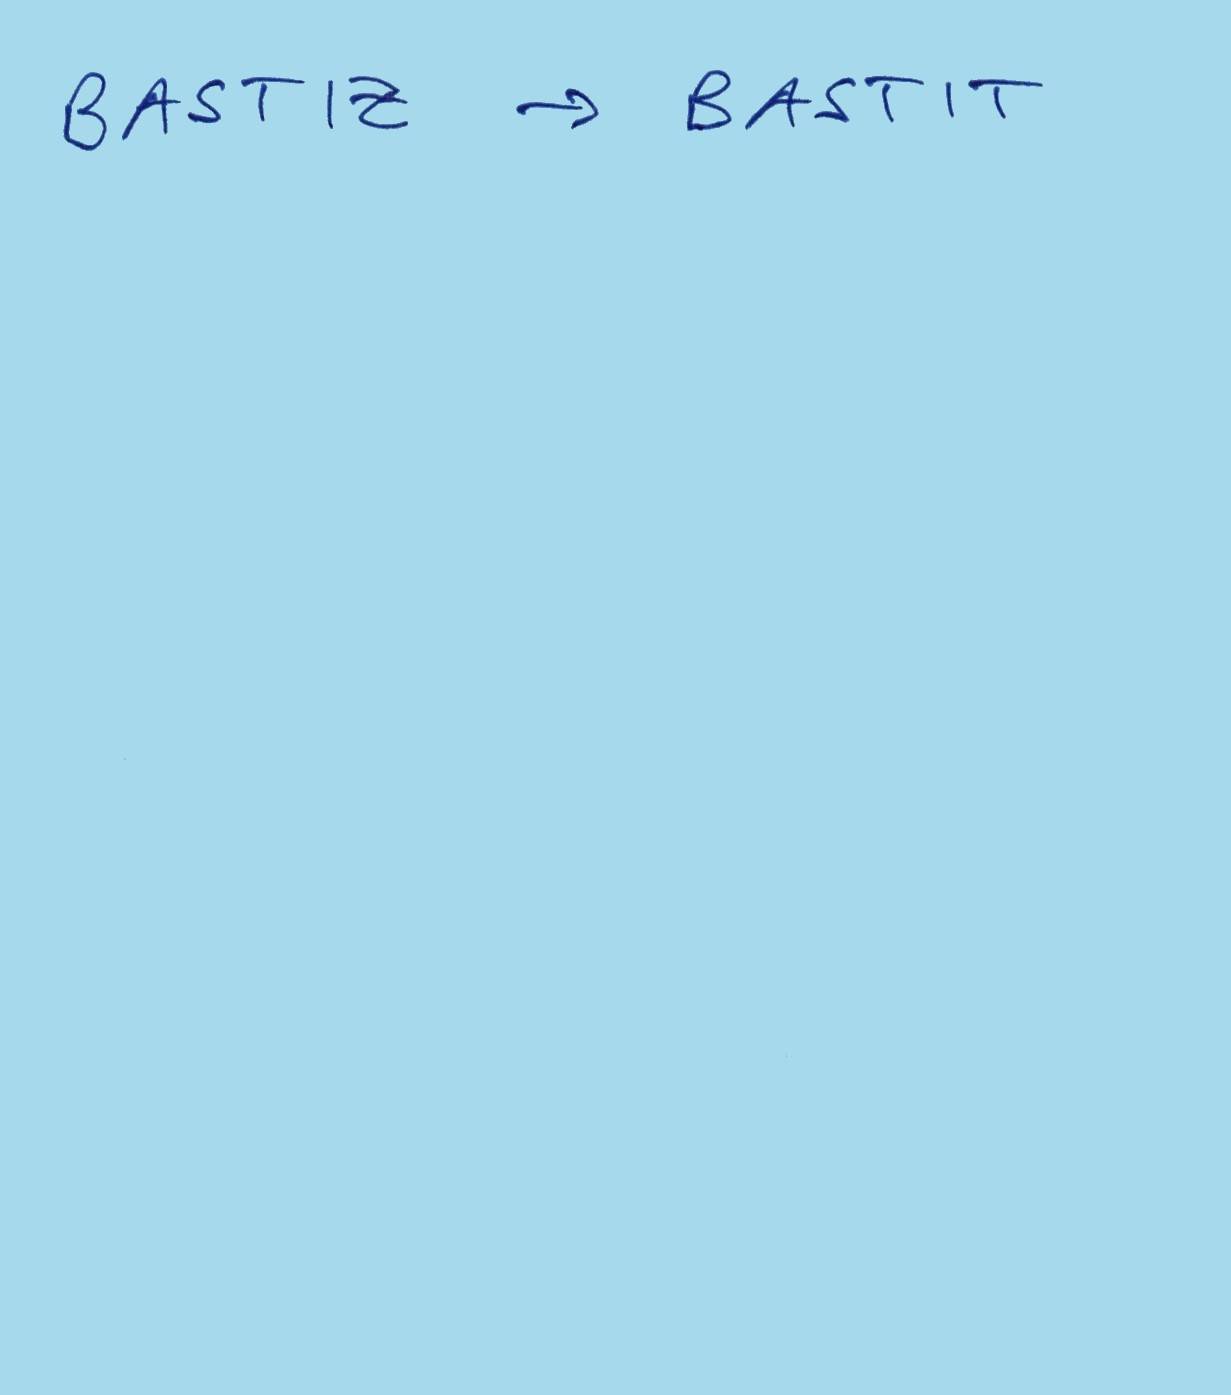 BASTIZ → BASTIT